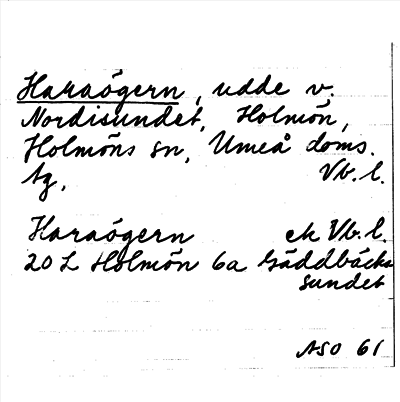 Haraögern, udde v.
Nordisundet, Holmön,
Holmöns sn, Umeå doms.
tg, Vb. l.
Haraögern ek Vb. l.
20 L Holmön 6a Gäddbäcks
sundet
ASO 61